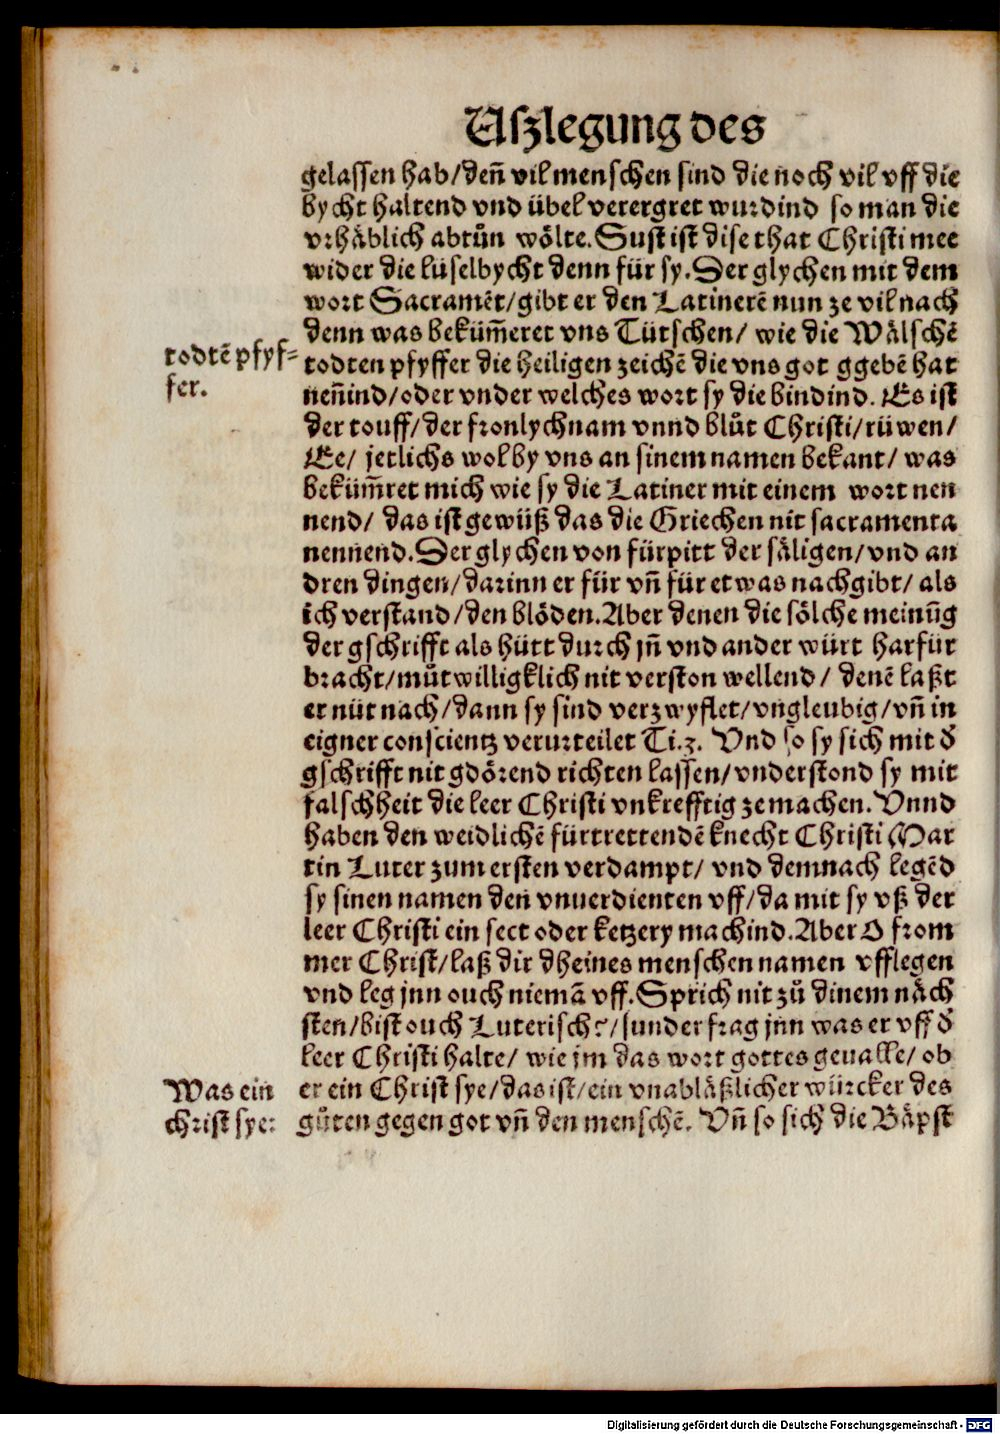 Uſzlegung des
gelassen hab/deñ vil menschen sind die noch vil vff die
bycht haltend vnd übel verergret wurdind so man die
vrhäblich abtůn wölte. Sust ist dise that Christi mee
wider die lüselbycht denn für sy. Der glychen mit dem
wort Sacramēt/gibt er den Latinerē nun ze vil nach
denn was beküm̄eret vns Tütschen/ wie die Wälschē
todtē pfyf=
fer.
todten pfyffer die heiligen zeichē die vns got ggebē hat
neñind/oder vnder welches wort sy die bindind. Es ist
der touff/der fronlychnam vnnd blůt Christi/rüwen/
Ee/ jetlichs wol by vns an sinem namen bekant/ was
beküm̄ret mich wie sy die Latiner mit einem wort nen
nend/ das ist gewüß das die Griechen nit sacramenta
nennend. Der glychen von fürpitt der säligen/vnd an
dren dingen/darinn er für vñ für etwas nachgibt/ als
ich verstand/den blöden. Aber denen die sölche meinūg
der gschrifft als hütt durch jñ vnd ander würt harfür
bracht/můtwilligklich nit verston wellend/ denē laßt
er nüt nach/dann sy sind verzwyflet/vngleubig/vñ in
eigner conscientz verurteilet Ti.3. Vnd so sy sich mit d̄
gschrifft nit gdörend richten lassen/vnderstond sy mit
falschheit die leer Christi vnkrefftig ze machen. Vnnd
haben den weidlichē fürtrettendē knecht Christi Mar
tin Luter zum ersten verdampt/ vnd demnach legēd
sy sinen namen den vnuerdienten vff/da mit sy vß der
leer Christi ein sect oder ketzery machind. Aber O from
mer Christ/laß dir dheines menschen namen vfflegen
vnd leg jnn ouch niemā vff. Sprich nit zů dinem näch
sten/bist ouch Luterisch?/sunder frag jnn was er vff d̄
leer Christi halte/ wie jm das wort gottes geualle/ ob
Was ein
christ sye:
er ein Christ sye/das ist/ein vnabläßlicher würcker des
gůten gegen got vñ den menschē. Vñ so sich die Bäpst
Digitalisierung gefördert durch die Deutsche Forschungsgemeinschaft - DFG